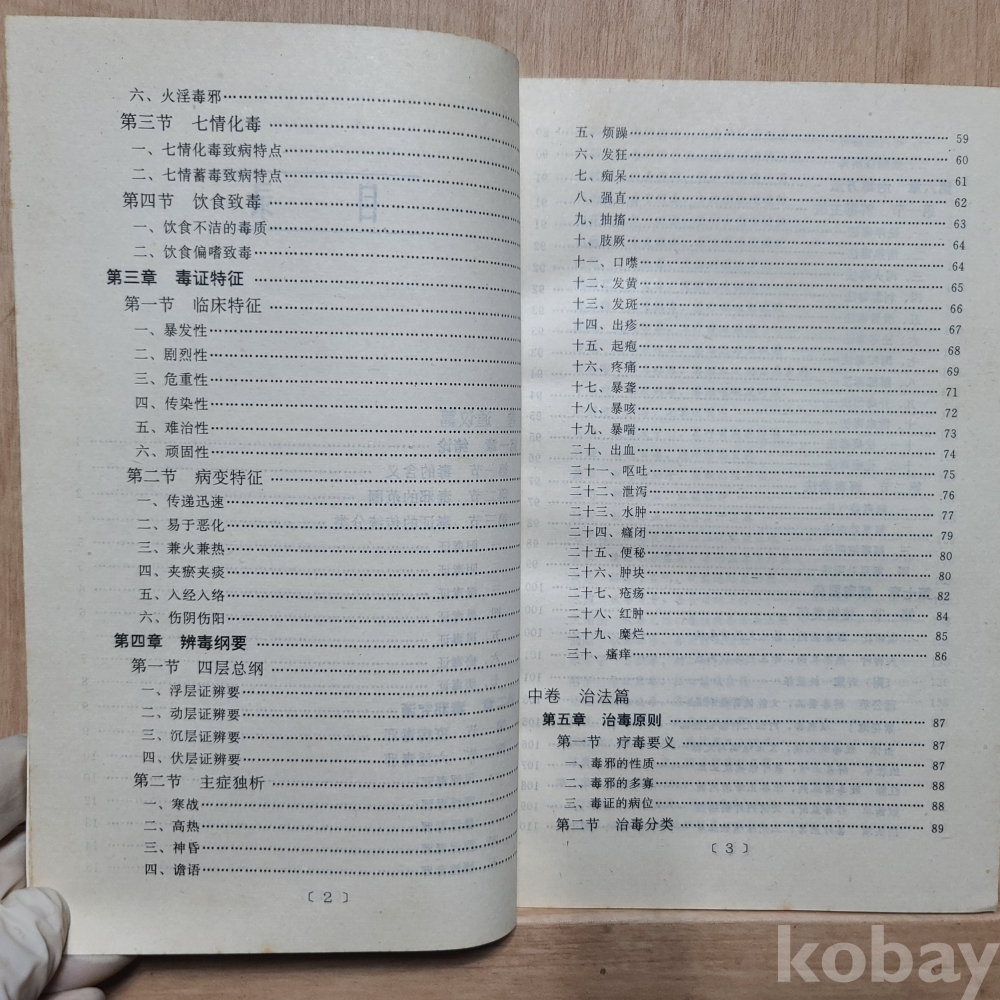 六、火淫毒邪
第三节 七情化毒
一、七情化毒致病特点
二、七情蓄毒致病特点
第四节 饮食致毒
一、饮食不洁的毒质
二、饮食偏嗜致毒
第三章 毒证特征
第一节 临床特征
一、暴发性
二、剧烈性
三、危重性
四、传染性
五、难治性
六、顽固性
第二节 病变特征
一、传递迅速
二、易于恶化
三、兼火兼热
四、夹瘀夹痰
五、入经入络
六、伤阴伤阳
第四章 辨毒纲要
第一节 四层总纲
一、浮层证辨要
二、动层证辨要
三、沉层证辨要
四、伏层证辨要
第二节 主症独析
一、寒战
二、高热
三、神昏
四、谵语
〔2〕
五、烦躁 59
六、发狂 60
七、痴呆 61
八、强直 62
九、抽搐 63
十、肢厥 64
十一、口噤 64
十二、发黄 65
十三、发斑 66
十四、出疹 67
十五、起疱 68
十六、疼痛 69
十七、暴聋 71
十八、暴咳 72
十九、暴喘 73
二十、出血 74
二十一、呕吐 75
二十二、泄泻 76
二十三、水肿 77
二十四、癃闭 79
二十五、便秘 80
二十六、肿块 80
二十七、疮疡 82
二十八、红肿 84
二十九、糜烂 85
三十、瘙痒 86
中卷 治法篇
第五章 治毒原则 87
第一节 疗毒要义 87
一、毒邪的性质 87
二、毒邪的多寡 88
三、毒证的病位 88
第二节 治毒分类 89
〔3〕
kobay